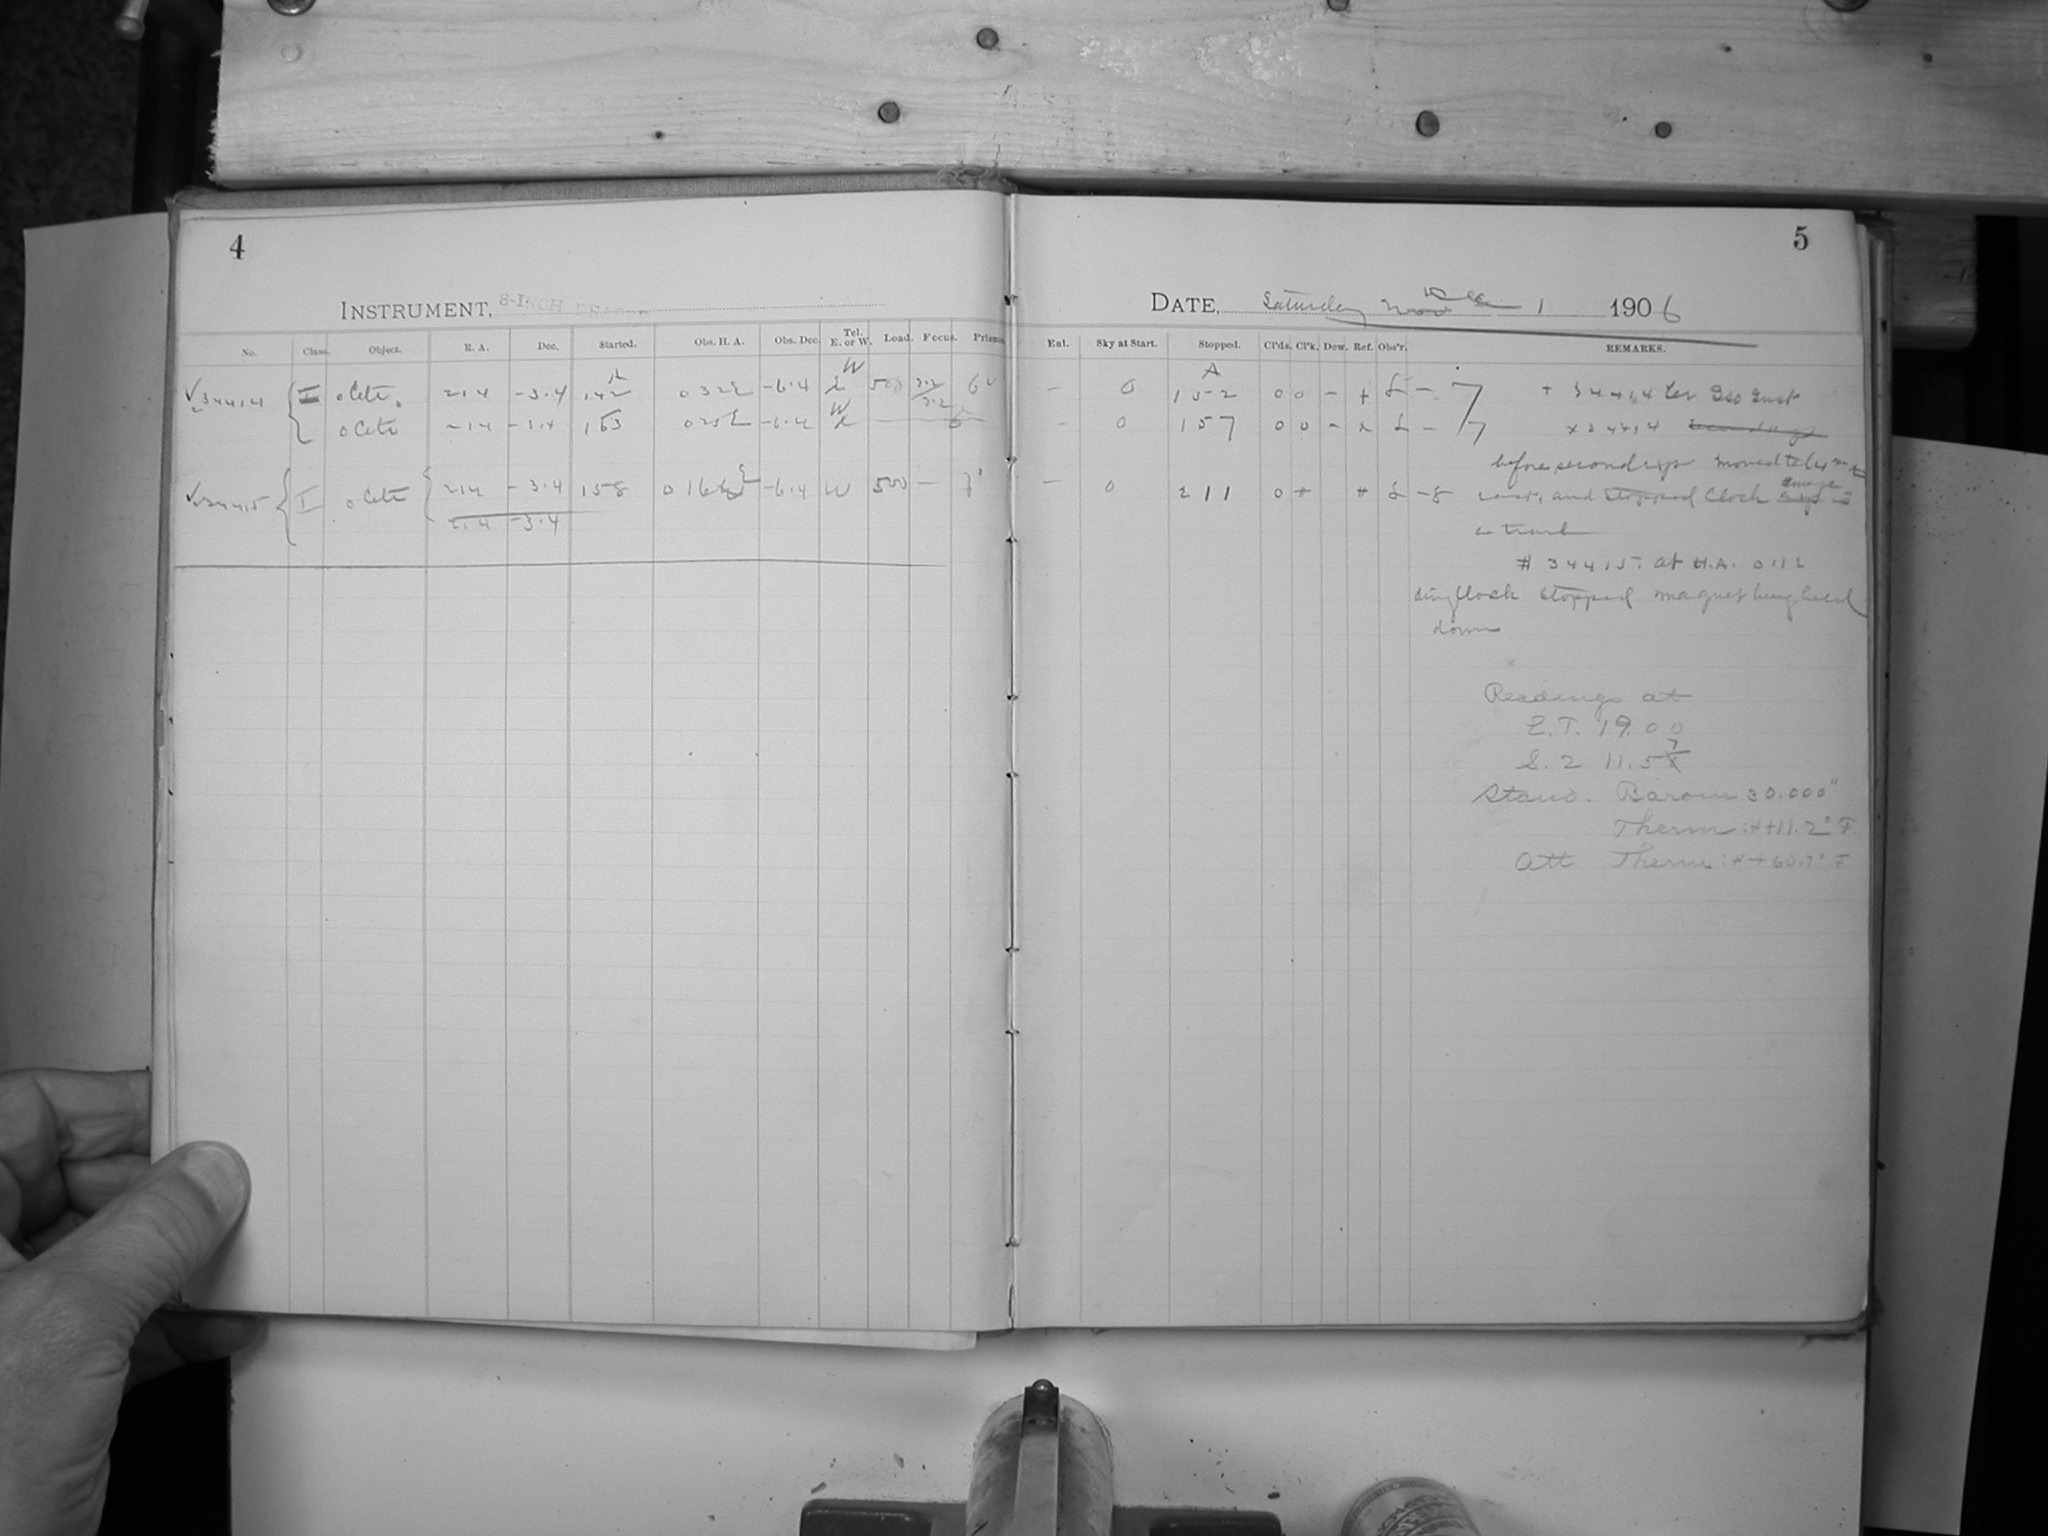 4
INSTRUMENT, 8-INCH DRAPER
No. Class. Object. R. A. Dec. Started. Obs. H. A. Obs. Dec. Tel. E. or W. Load. Focus. Prisms
34414 I o Ceti 2 14 -3.4 1 42 0 32 E -6.4 W 500 60
o Ceti 2 14 -3.4 1 53 0 25 E -6.4 W
34415 I o Ceti 2 14 -3.4 1 58 0 16 E -6.4 W 500 —
2 14 -3.4
5
DATE, Saturday Dec 1 1906
Ent. Sky at Start. Stopped. Cl'ds. Cl'k. Dew. Ref. Obs'r. REMARKS.
— 0 1 52 0 0 — + L — 7 + 34414
— 0 1 57 0 0 — × L — 7 × 34414
before second exp moved telx
— 0 2 11 0 + # L -8 east, and stopped Clock
a trail
# 34415. at H.A. 0 11
Clock stopped magnet being held
down
Readings at
E.T. 19.00
S. 2 11.57
Stand. Barom 30.000"
Therm: ++11.2° F.
Att Therm: ++60.7° F